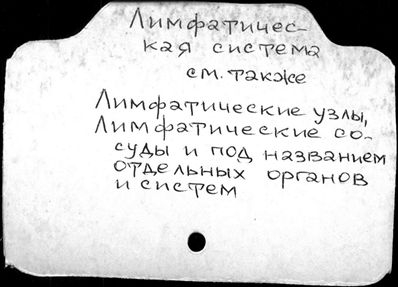 Лимфатичес-
кая система
см. также
Лимфатические узлы,
Лимфатические со-
суды и под названием
отдельных органов
и систем